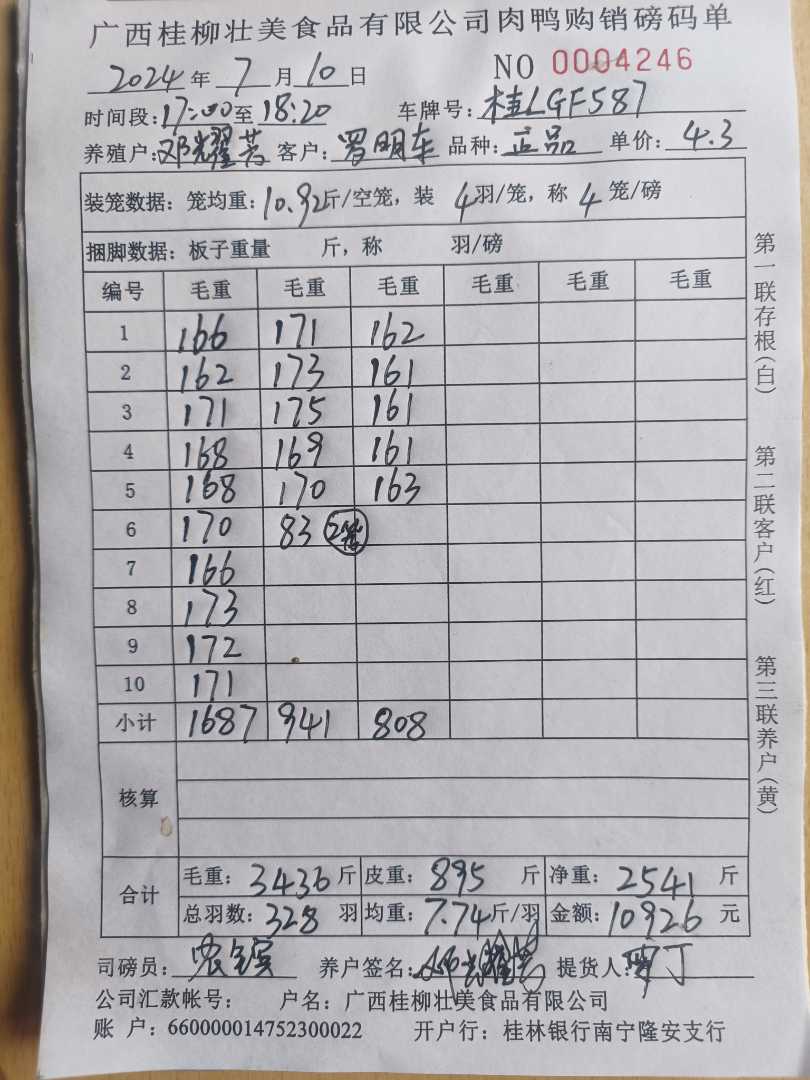 广西桂柳壮美食品有限公司肉鸭购销磅码单
2024年 7月10日 NO 0004246
时间段:17:00至18:20 车牌号:桂LGF587
养殖户:邓耀芳 客户:罗明车 品种:正品 单价:4.3
装笼数据:笼均重:10.92斤/空笼,装 4羽/笼,称 4笼/磅
捆脚数据:板子重量 斤,称 羽/磅
编号 毛重 毛重 毛重 毛重 毛重 毛重
1 166 171 162
2 162 173 161
3 171 175 161
4 168 169 161
5 168 170 163
6 170 83 2笼
7 166
8 173
9 172
10 171
小计 1687 941 808
核算
合计 毛重:3436斤 皮重:895斤 净重:2541斤
总羽数:328羽 均重:7.74斤/羽 金额:10926元
司磅员: 养户签名: 提货人:
公司汇款帐号: 户名:广西桂柳壮美食品有限公司
账 户:660000014752300022 开户行:桂林银行南宁隆安支行
第一联存根(白) 第二联客户(红) 第三联养户(黄)